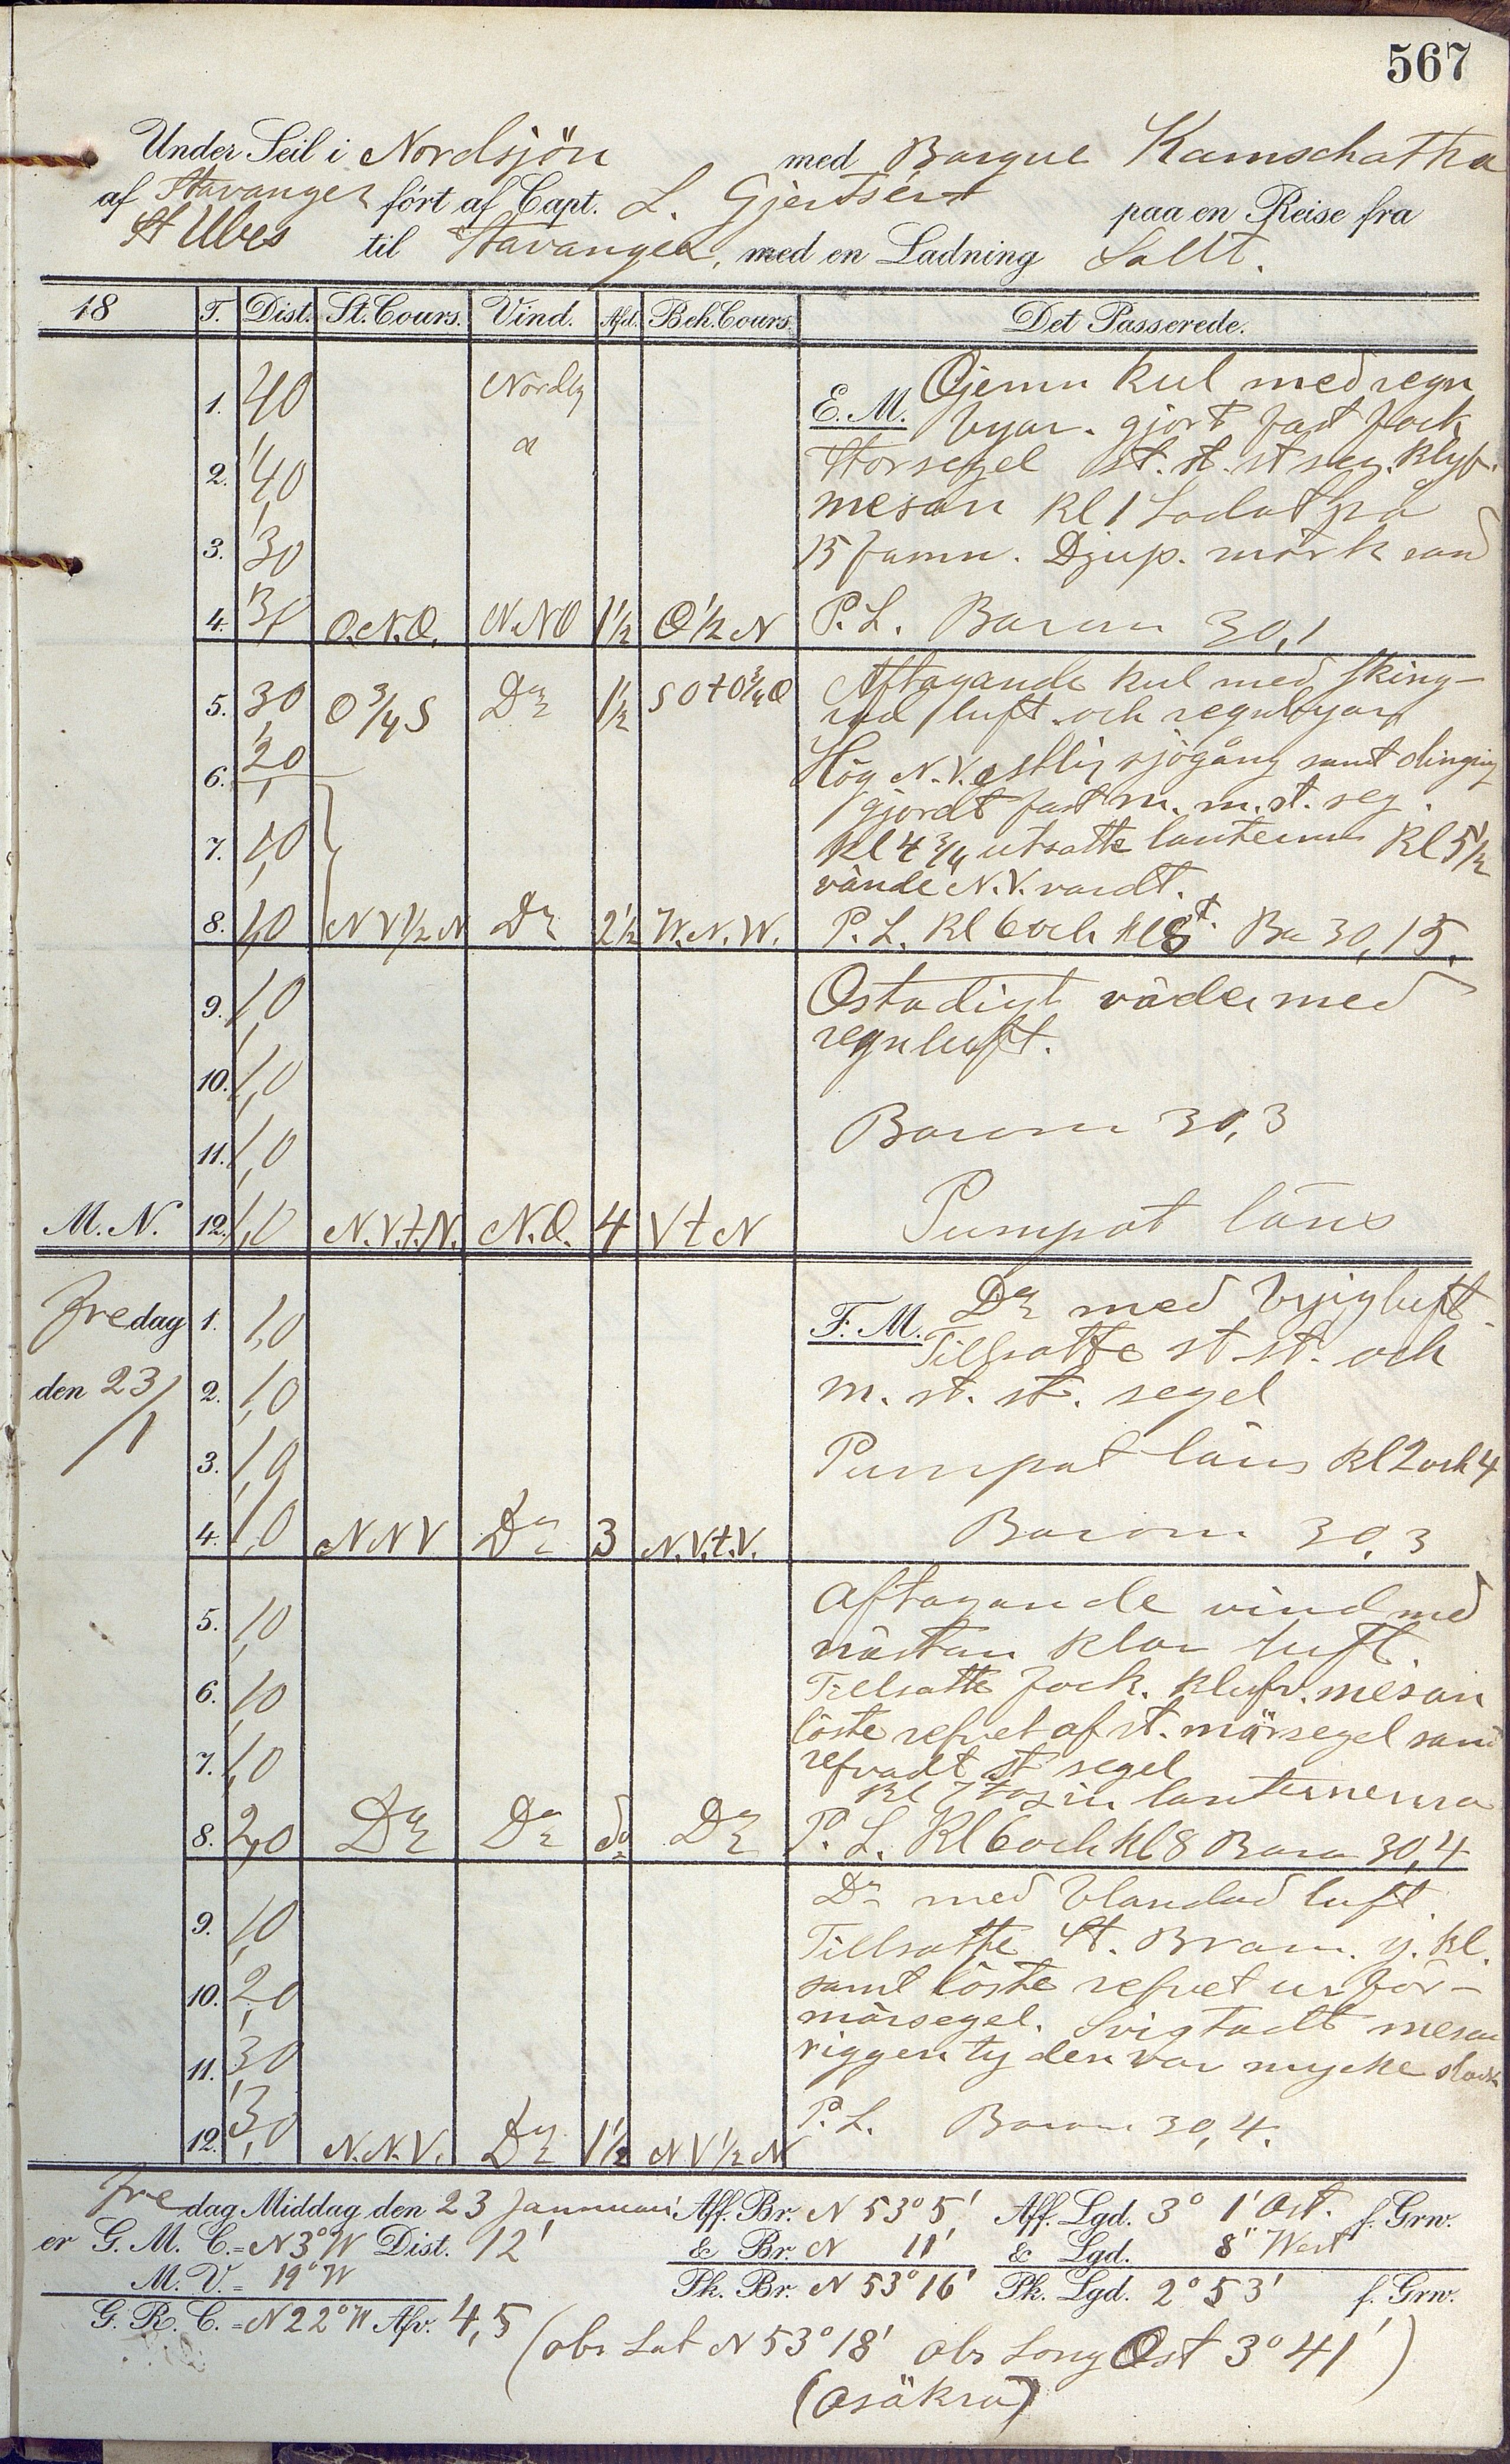 567
Under Seil i Nordsjön med Barque Kamschatka
af Stavanger fört af Capt. L. Gjertsen paa en Reise fra
St Ubes til Stavanger, med en Ladning Sallt.
18 T. Dist. St. Cours. Vind. Afd. Beh. Cours. Det Passerede.
E. M. Ojemn kul med regn
1. 4,0 Nordlig
byar. gjort fast fock
Storsegel st. st. st seg. klyf.
2. 4,0
mesan kl 1 Lodat på
3. 3,0
15 famn. Djup. mörk sand
4. 3,0 O.N.O. N.NO 1 1/2 O 1/2 N P. L. Barom 30,1
Aftagande kul med sking-
5. 3,0 O 3/4 S Do 1 1/2 SOtO 3/4 O rad luft och regnbyar
6. 2,0 Hög N.V.ostlig sjögång samt dingning
gjordt fast m. m. st. seg.
7. 1,0 kl 4 3/4 utsatte lanternor kl 5 1/2
vände N.V. vardt.
8. 1,0 N V 1/2 N Do 2 1/2 W.N.W. P. L. kl 6 och kl 8 Ba 30,15.
9. 1,0 Ostadigt väder med
regnluft.
10. 1,0
11. 1,0 Barom 30,3
M. N. 12. 1,0 N.V.t.N. N.O. 4 V t N Pumpat läns
Fredag 1. 1,0 F. M. Do med byigluft
Tillsatte st. st. och
den 23/1 2. 1,0 m. st. st. segel
3. 1,0 Pumpat läns kl 2 och 4
4. 1,0 N N V Do 3 N.V.t.V. Barom 30,3
Aftagande vind med
5. 1,0 nästan klar luft.
6. 1,0 Tillsatte fock. klyfv. mesan
löste refvet af st. märsegel samt
7. 1,0 refvadt st segel
kl 7 tog in lanternerna
8. 2,0 Do Do do Do P. L. Kl 6 och kl 8 Baro 30,4
Do med blandad luft
9. 1,0 Tillsatte St. Bram. y. kl.
10. 2,0 samt löste refvet ur för-
märsegel. Svigtadt mesan
11. 3,0 riggen ty den var mycke slack
12. 3,0 N.N.V. Do 1 1/2 N V 1/2 N P. L. Barom 30,4.
Fredag Middag den 23 Januari Aff. Br. N 53° 5' Aff. Lgd. 3° 1' Ost. f. Grw.
er G. M. C. = N 3° W Dist. 12' & Br. N 11' & Lgd. 8" West
M. V. = 19° W Pk. Br. N 53° 16' Pk. Lgd. 2° 53' f. Grw.
G. R. C. = N 22° W Afv. 4,5
(obs Lat N 53° 18' obs Long Ost 3° 41')
(osäkra)